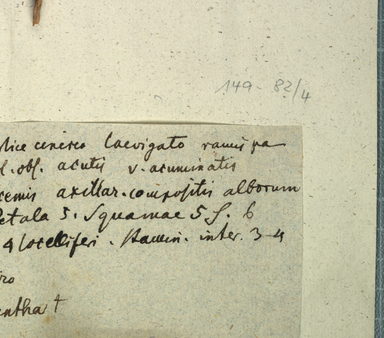 149-82/4
tice cinereo laevigato ramis pa
l. obl. acutis v. acuminatis
cemis axillar. compositis alborum
etala 5. Squamae 5 s. 6
4 locelliferi. Stamin. inter. 3-4
ro
entha †